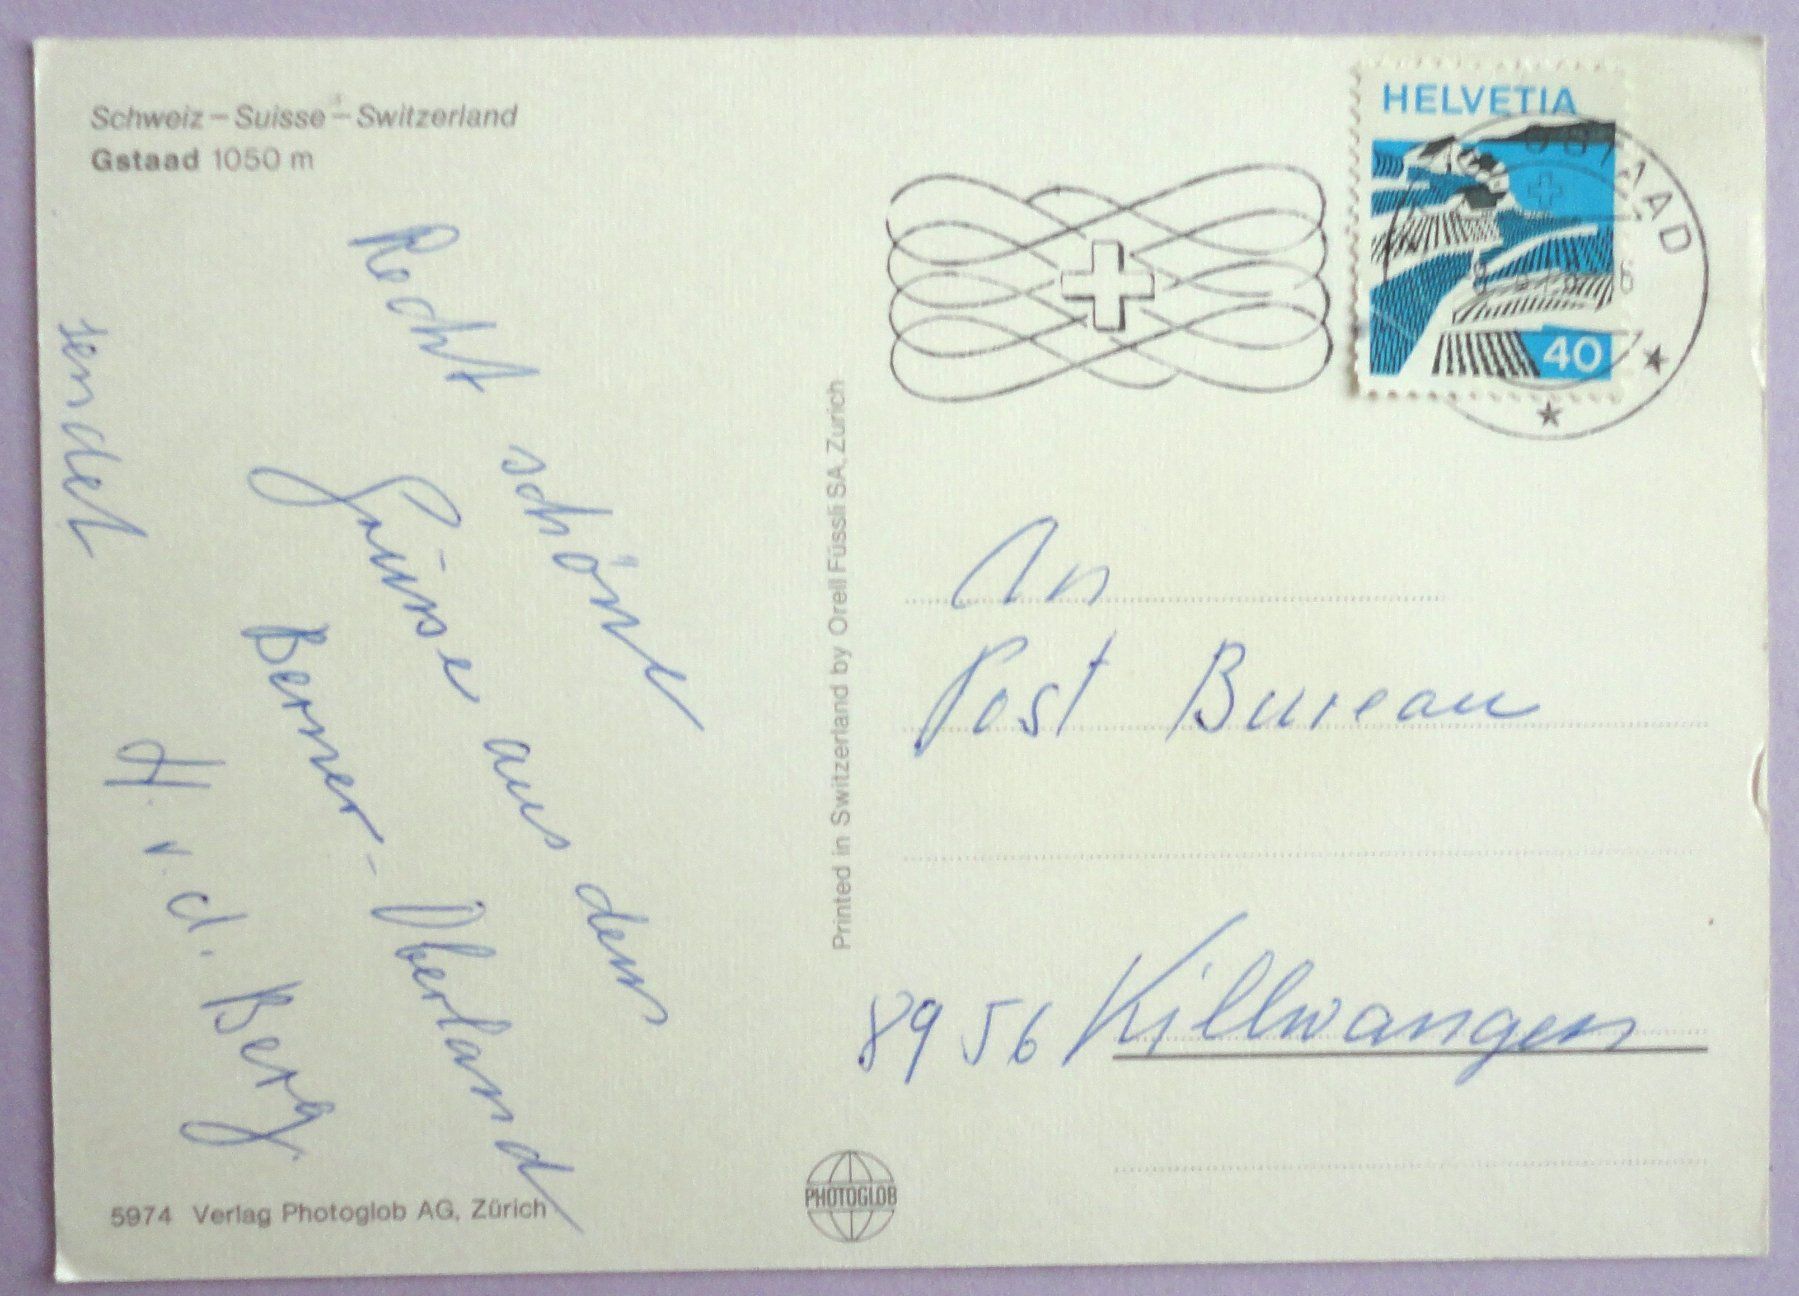 Schweiz – Suisse – Switzerland
Gstaad 1050 m
Recht schöne
Grüsse aus dem
Berner-Oberland
sendet
H. v. d. Berg
5974 Verlag Photoglob AG, Zürich
Printed in Switzerland by Orell Füssli SA, Zürich
PHOTOGLOB
HELVETIA
40
GSTAAD
An
Post Bureau
8956 Killwangen